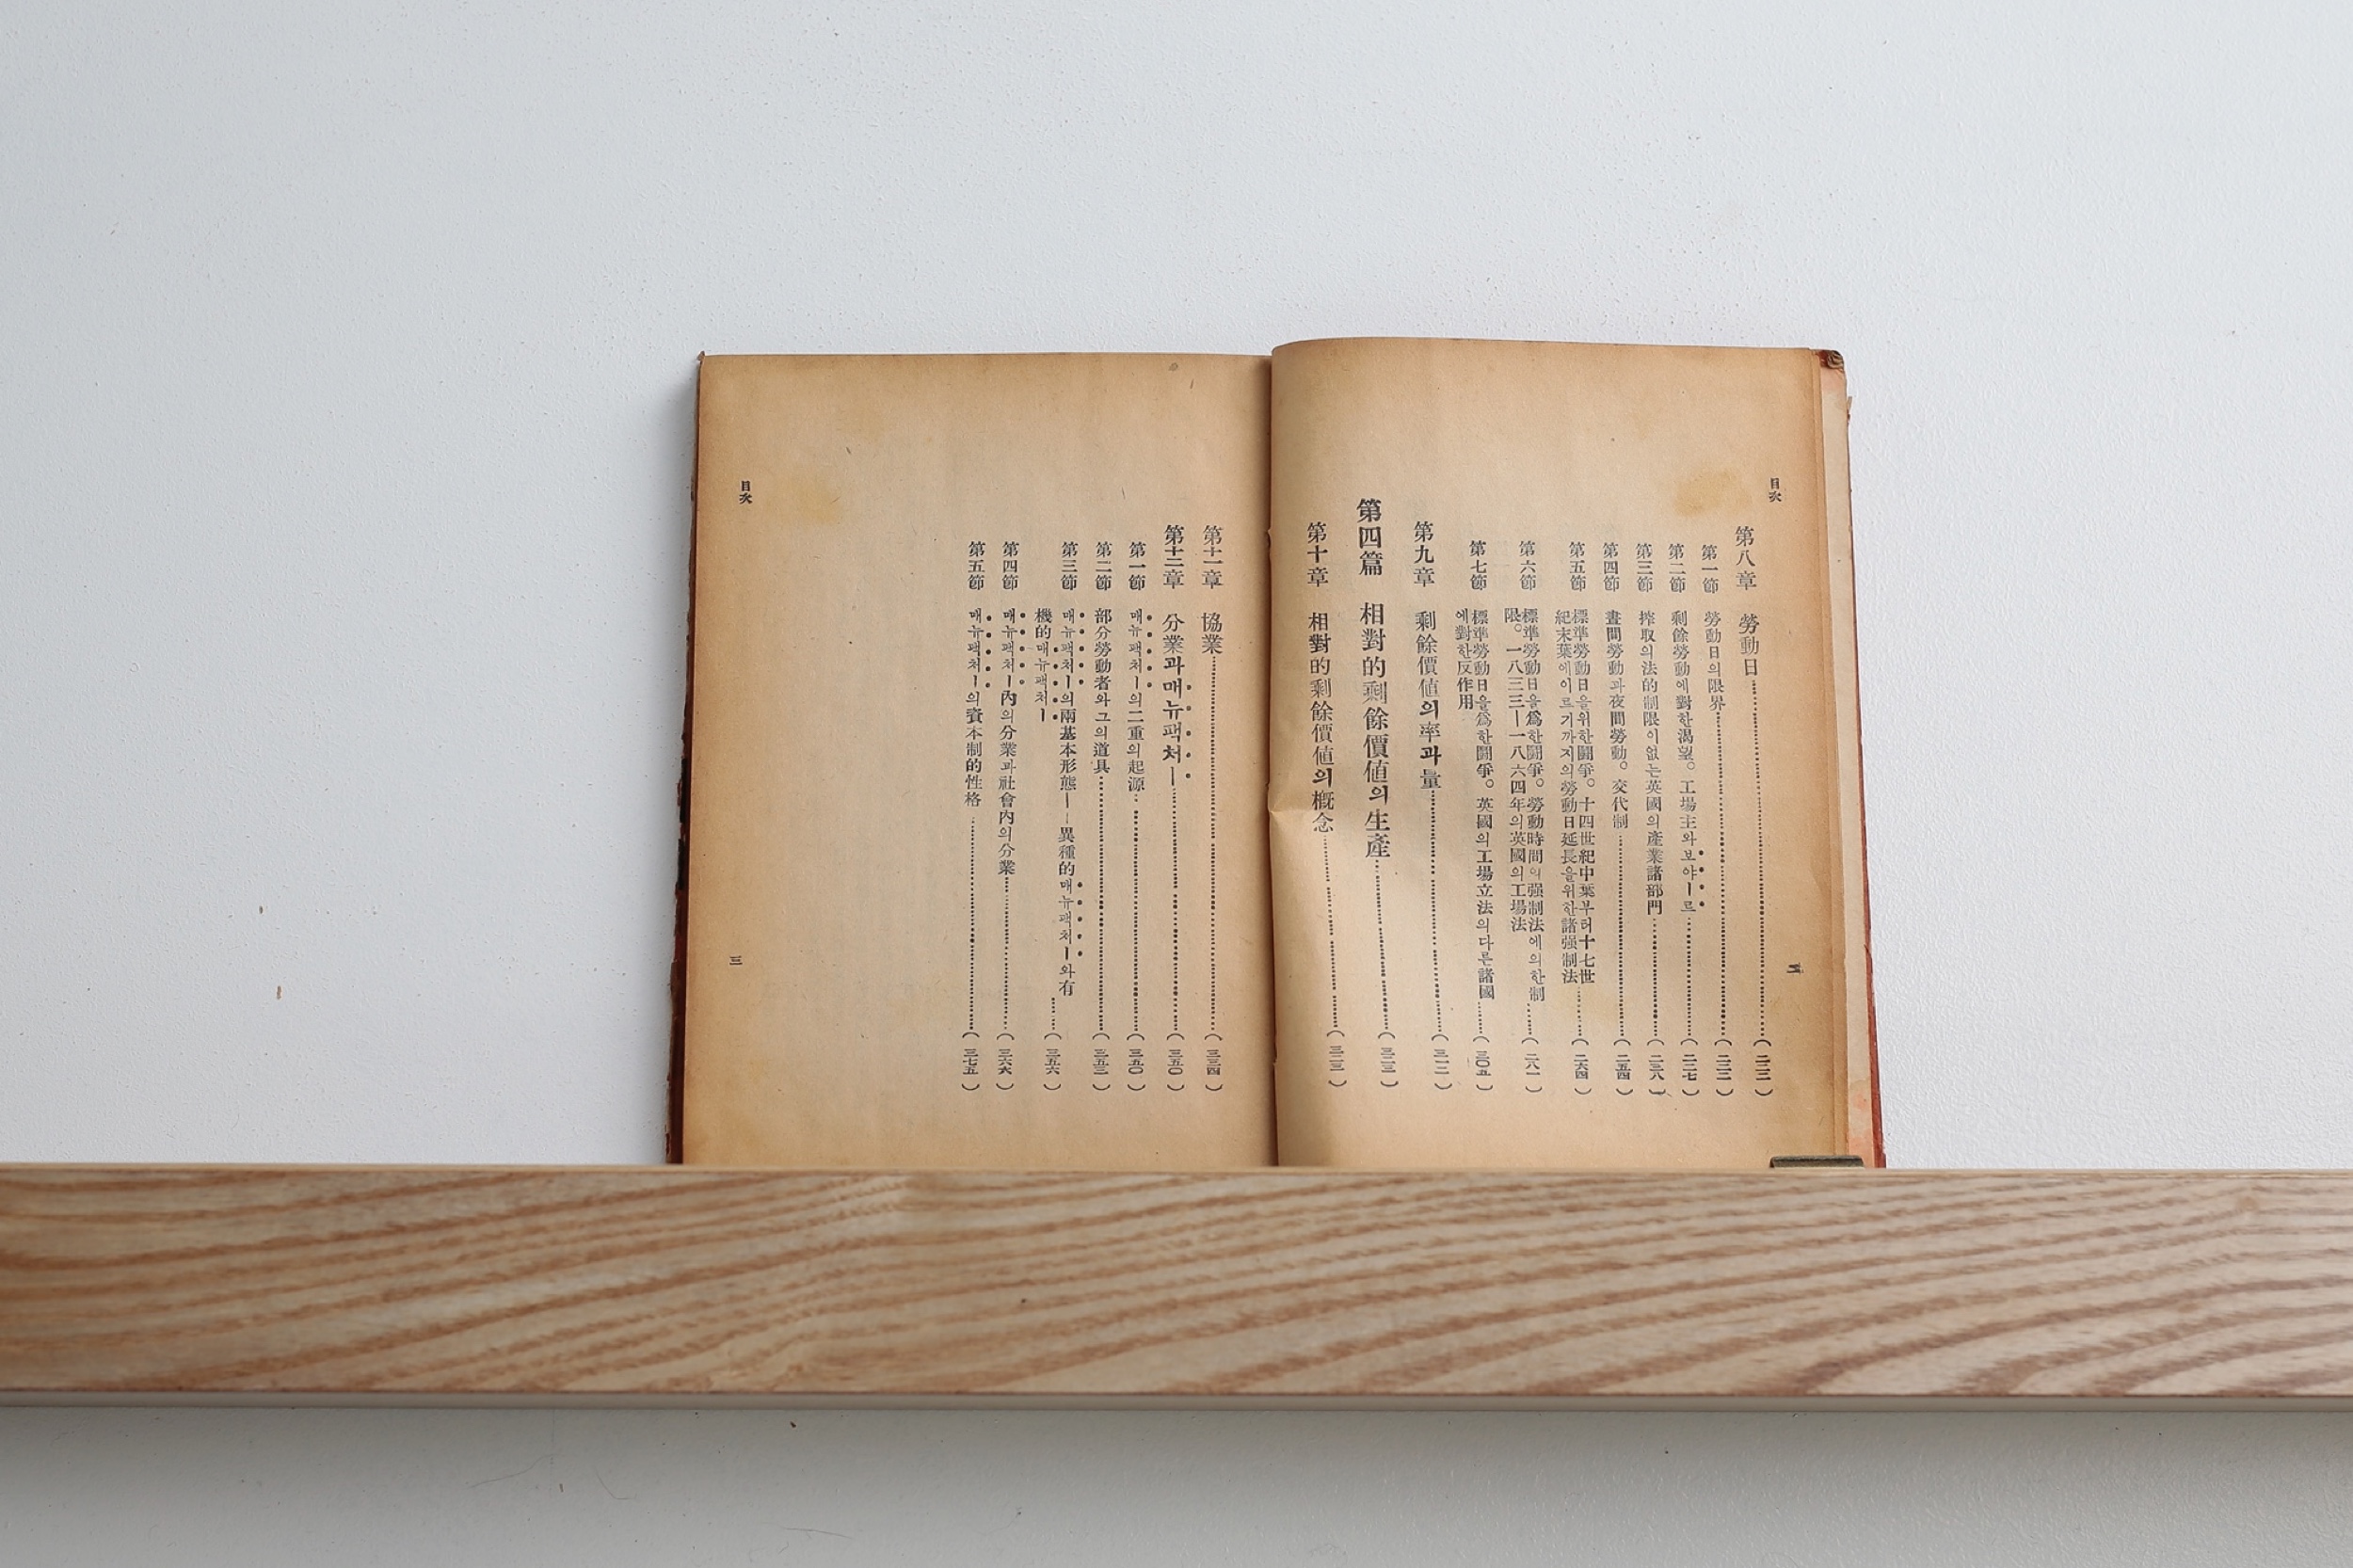 目次
第八章 勞動日……(二二二)
第一節 勞動日의限界……(二二二)
第二節 剩餘勞動에對한渴望。工場主와보야ー르……(二二七)
第三節 搾取의法的制限이없는英國의產業諸部門……(二三八)
第四節 晝間勞動과夜間勞動。交代制……(二五四)
第五節 標準勞動日을위한鬪爭。十四世紀中葉부터十七世
紀末葉에이르기까지의勞動日延長을위한諸强制法……(二六四)
第六節 標準勞動日을爲한鬪爭。勞動時間의强制法에의한制
限。一八三三ー一八六四年의英國의工場法……(二八一)
第七節 標準勞動日을爲한鬪爭。英國의工場立法의다른諸國
에對한反作用……(三〇五)
第九章 剩餘價値의率과量……(三一二)
第四篇 相對的剩餘價値의生產……(三二三)
第十章 相對的剩餘價値의槪念……(三二三)
目次
第十一章 協業……(三三四)
第十二章 分業과매뉴팩처ー……(三五〇)
第一節 매뉴팩처ー의二重의起源……(三五〇)
第二節 部分勞動者와그의道具……(三五三)
第三節 매뉴팩처ー의兩基本形態ーー異種的매뉴팩처ー와有
機的매뉴팩처ー……(三五六)
第四節 매뉴팩처ー內의分業과社會內의分業……(三六六)
第五節 매뉴팩처ー의資本制的性格……(三七五)
三